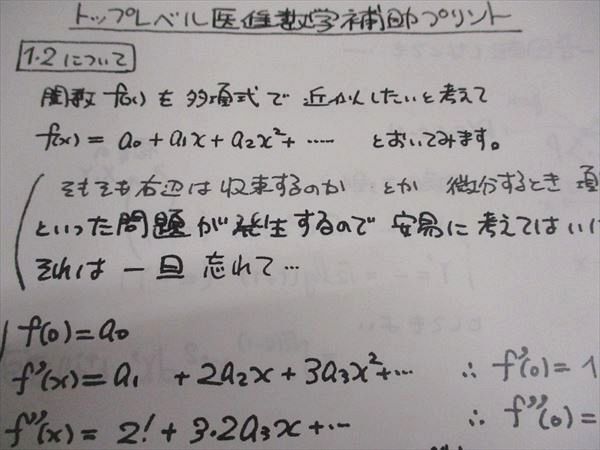 トップレベル医進数学補助プリント
1・2について
関数 f(x) を多項式で近かんしたいと考えて
f(x) = a0 + a1x + a2x² + ····· とおいてみます。
そもそも右辺は収束するのか とか 微分するとき 項
といった問題が発生するので 安易に考えてはい
それは 一旦 忘れて…
f(0) = a0
f'(x) = a1 + 2a2x + 3a3x² + ··· ∴ f'(0) = 1
f''(x) = 2! + 3·2a3x + ··· ∴ f''(0) =